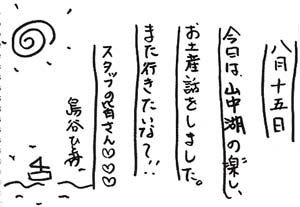 八月十五日
今日は、山中湖の楽しい
お土産話をしました。
また行きたいな〜!!
スタッフの皆さん♡♡♡